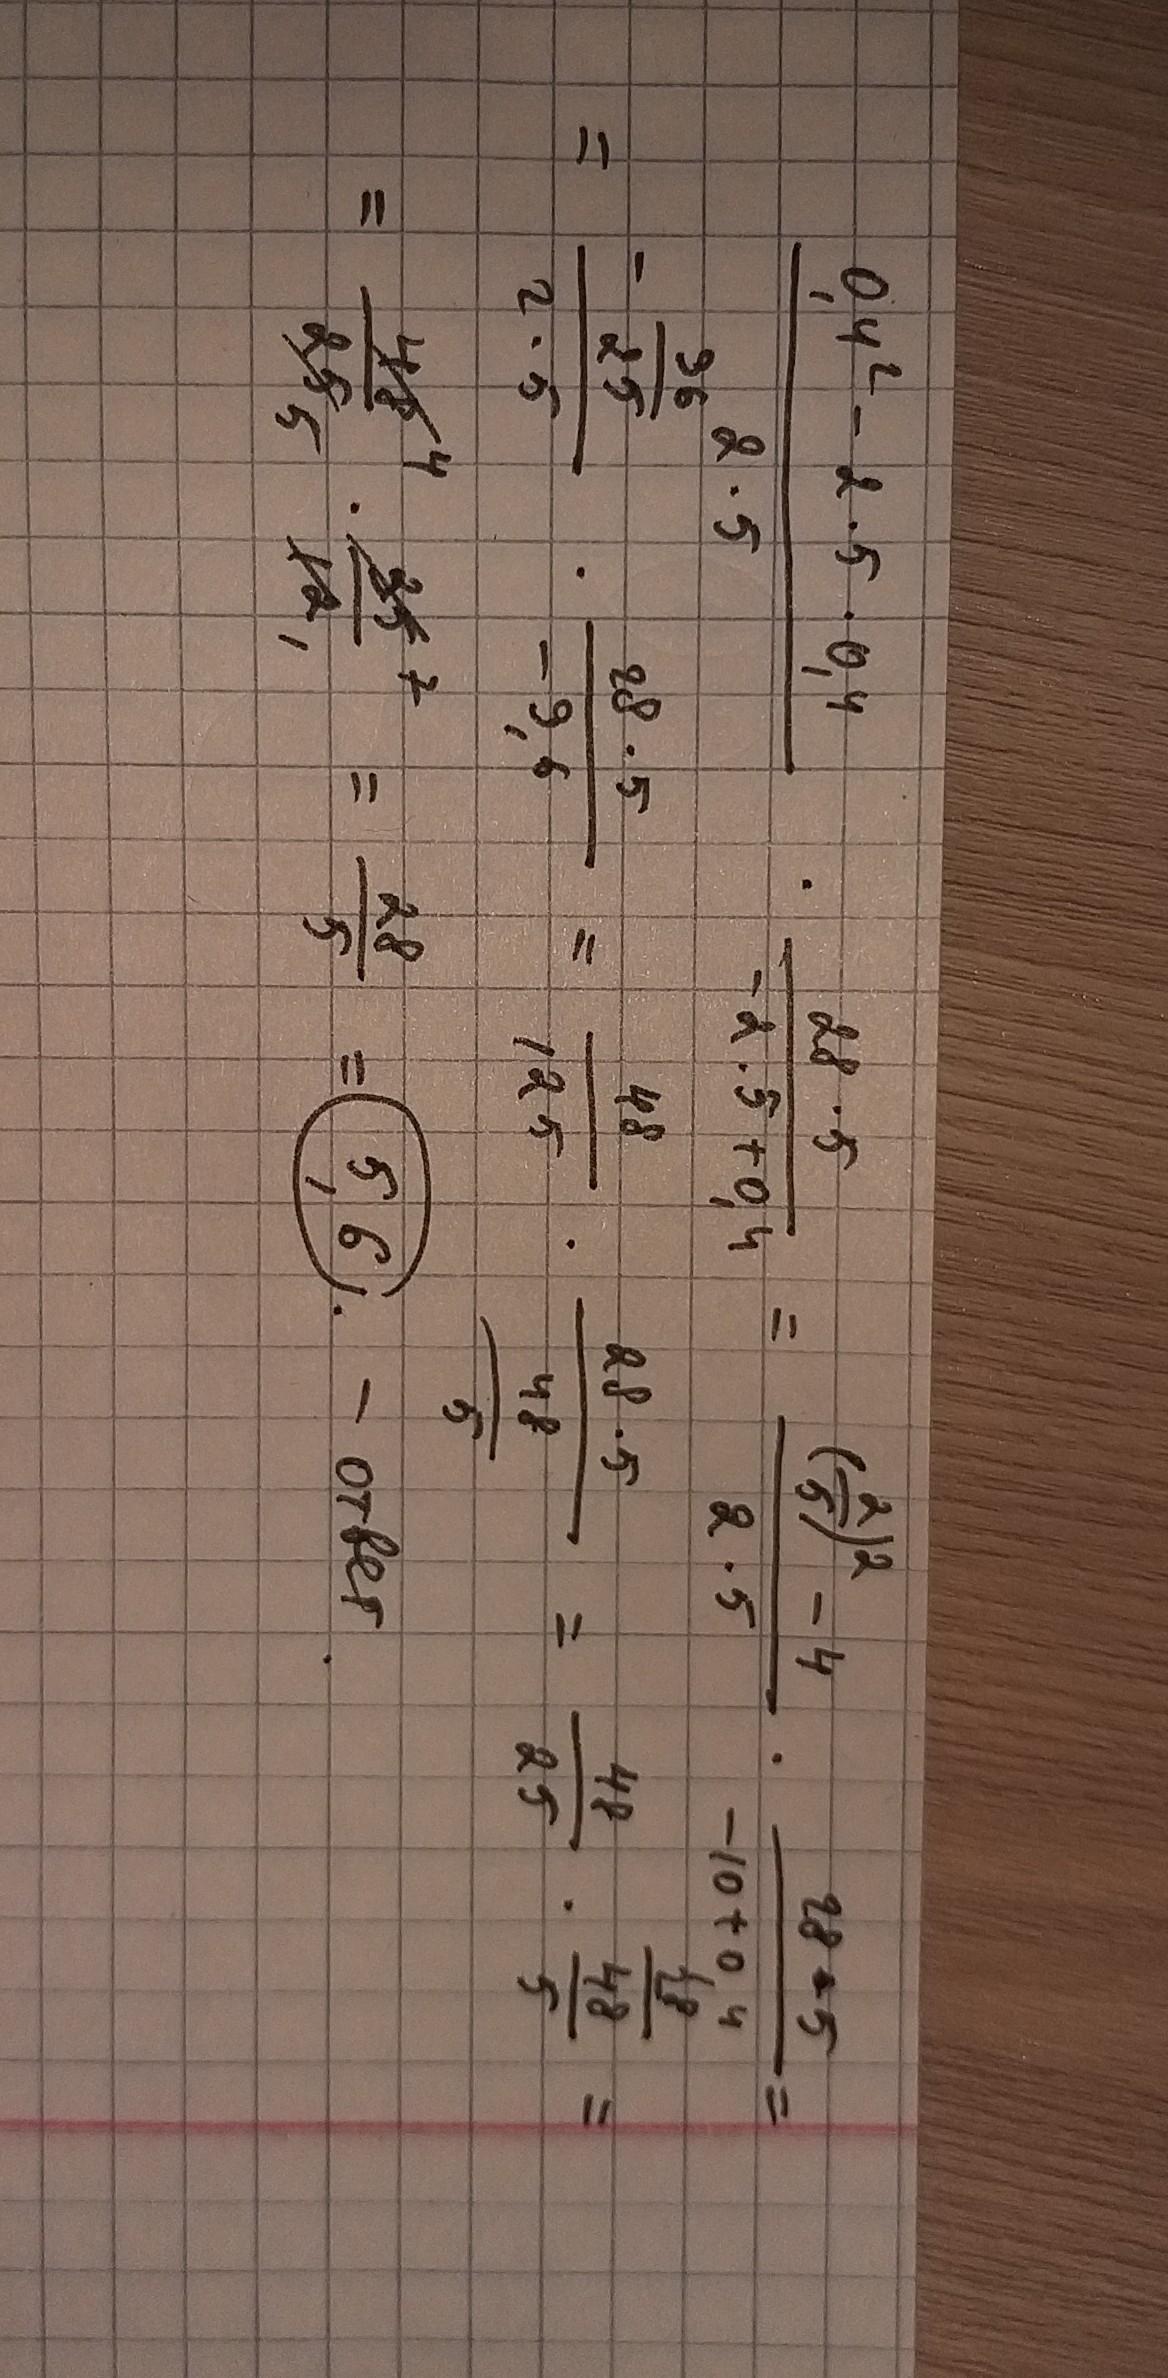 (0,4² - 2·5·0,4)/(2·5) · (28·5)/(-2·5+0,4) = ((2/5)² - 4)/(2·5) · (28·5)/(-10+0,4) =
= (-96/25)/(2·5) · (28·5)/(-9,6) = 48/125 · (28·5)/(48/5) = 48/25 · /(48/5) =
= 48/25 · 35/12 = 28/5 = 5,6. - ответ.